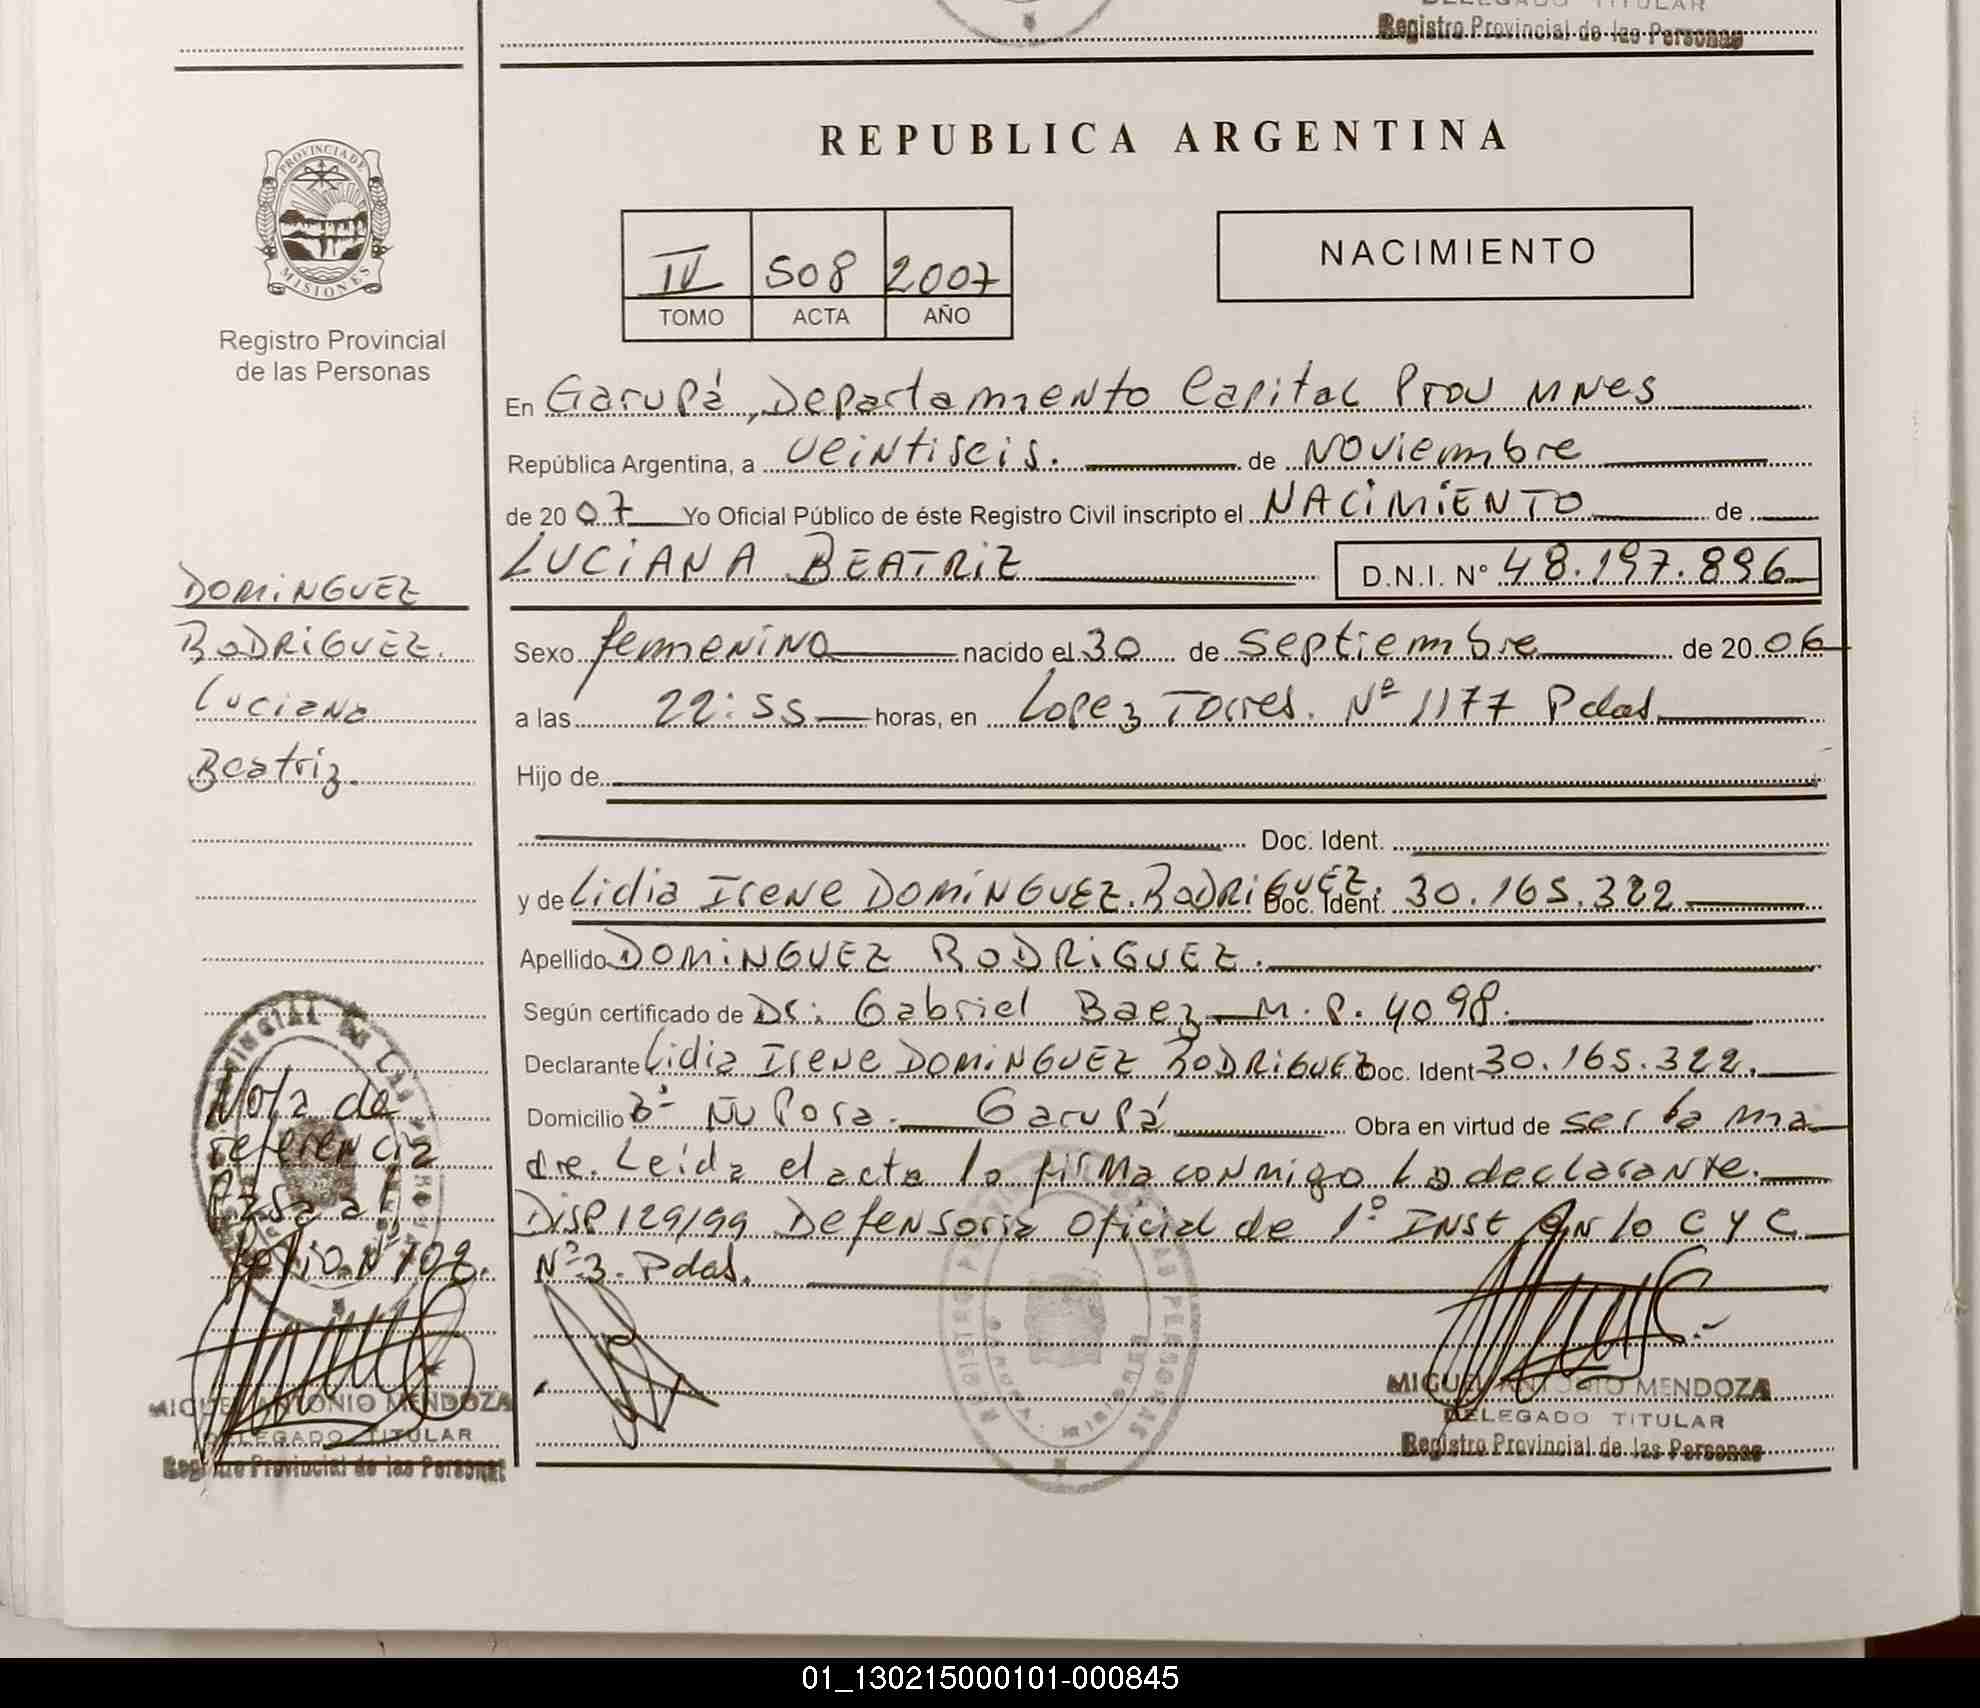 DELEGADO TITULAR
Registro Provincial de las Personas
PROVINCIA DE
MISIONES
Registro Provincial
de las Personas
REPUBLICA ARGENTINA
IV 508 2007
TOMO ACTA AÑO
NACIMIENTO
En Garupá, Departamento Capital Prov MNes
República Argentina, a veintiseis. de Noviembre
de 2007 Yo Oficial Público de éste Registro Civil inscripto el NACIMIENTO de
LUCIANA BEATRIZ D.N.I. N° 48.197.896
DOMINGUEZ
RODRIGUEZ.
Luciana
Beatriz.
Sexo femenino nacido el 30 de septiembre de 2006
a las 22:55 horas, en Lopez Torres. Nº 1177 Pdas.
Hijo de
Doc. Ident.
y de Lidia Irene DOMINGUEZ.RODRIGUEZ. Doc. Ident. 30.165.322
Apellido DOMINGUEZ RODRIGUEZ.
Según certificado de Dr: Gabriel Baez M.P. 4098.
Declarante Lidia Irene DOMINGUEZ RODRIGUEZ Doc. Ident 30.165.322.
Domicilio Bº Ñu Pora. Garupá Obra en virtud de ser la ma
dre. Leída el acta la firma conmigo la declarante.
Disp 129/99 Defensoria Oficial de 1º INST en lo C y C
Nº3. Pdas.
Nota de
referencia
Pasa al
Folio Nº 102.
MIGUEL ANTONIO MENDOZA
DELEGADO TITULAR
Registro Provincial de las Personas
MIGUEL ANTONIO MENDOZA
DELEGADO TITULAR
Registro Provincial de las Personas
01_130215000101-000845